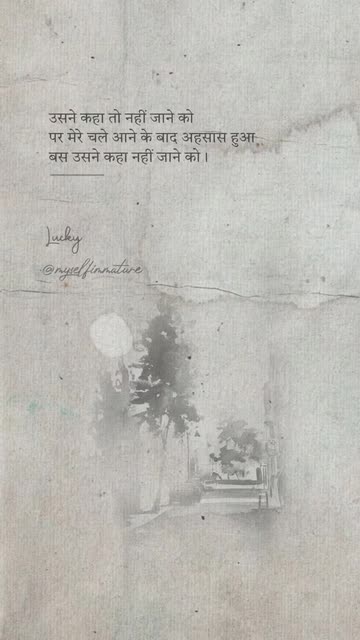 उसने कहा तो नहीं जाने को
पर मेरे चले आने के बाद अहसास हुआ
बस उसने कहा नहीं जाने को।
Lucky
@myselfimmature